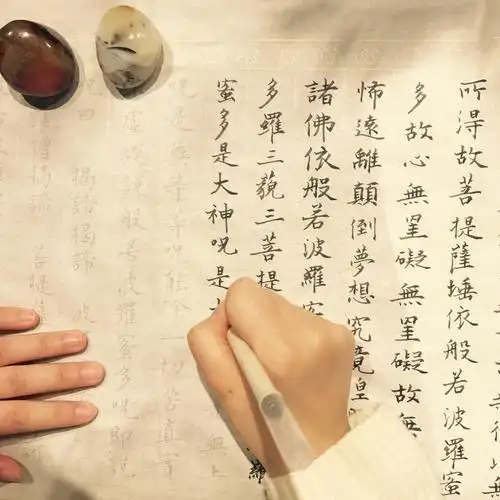 所得故菩提薩埵依般若波羅蜜
多故心無罣礙無罣礙故無
怖遠離顛倒夢想究竟
諸佛依般若波羅
多羅三藐三菩提
蜜多是大神咒是
咒是無等等咒能除一切苦真實
虛故說般若波羅蜜多咒即說
咒曰 揭諦揭諦 波
僧揭諦 菩提薩